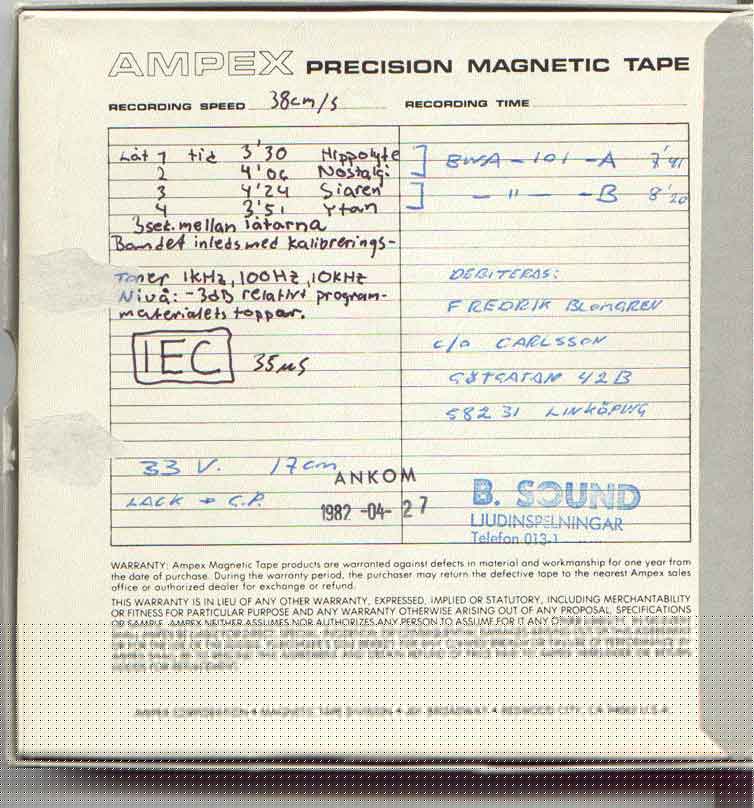 AMPEX PRECISION MAGNETIC TAPE
RECORDING SPEED 38cm/s RECORDING TIME
Låt 1 tid 3'30 Hippolyte
2 4'06 Nostalgi
3 4'24 Siaren
4 3'51 Ytan
] BWSA-101-A 7'41
] - " - -B 8'20
3sek. mellan låtarna
Bandet inleds med kalibrerings-
Toner 1kHz, 100Hz, 10kHz
Nivå: -3dB relativt program-
materialets toppar.
IEC 35µS
DEBITERAS:
FREDRIK BLOMGREN
c/o CARLSSON
GÖTGATAN 42B
582 31 LINKÖPING
33 V. 17cm
LACK → G.P.
ANKOM
1982 -04- 27
B. SOUND
LJUDINSPELNINGAR
Telefon 013-1
WARRANTY: Ampex Magnetic Tape products are warranted against defects in material and workmanship for one year from
the date of purchase. During the warranty period, the purchaser may return the defective tape to the nearest Ampex sales
office or authorized dealer for exchange or refund.
THIS WARRANTY IS IN LIEU OF ANY OTHER WARRANTY, EXPRESSED, IMPLIED OR STATUTORY, INCLUDING MERCHANTABILITY
OR FITNESS FOR PARTICULAR PURPOSE AND ANY WARRANTY OTHERWISE ARISING OUT OF ANY PROPOSAL, SPECIFICATIONS
OR SAMPLE. AMPEX NEITHER ASSUMES NOR AUTHORIZES ANY PERSON TO ASSUME FOR IT ANY
AMPEX CORPORATION • MAGNETIC TAPE DIVISION • BROADWAY • REDWOOD CITY, CA